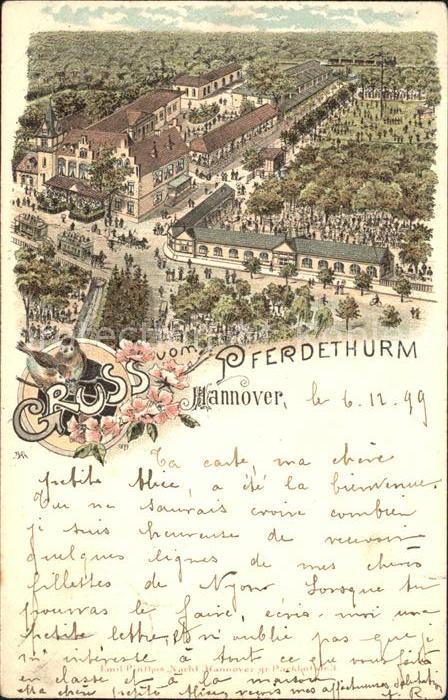 GRUSS vom PFERDETHURM
Hannover, le 6.12.99
Ta carte, ma chère
petite Alice, a été la bienvenue.
Tu ne saurais croire combien
je suis heureuse de recevoir
quelques lignes de mes chères
fillettes de Nyon. Lorsque tu
pourras le faire, écris moi une
petite lettre, et n'oublie pas que je
m'intéresse à tout ce que vous faites
Emil Pinkus Nachf. Hannover gr. Packhofstr.
en classe et à la maison
ma chère petite Alice, reçois mes affectueuses salutations
R.